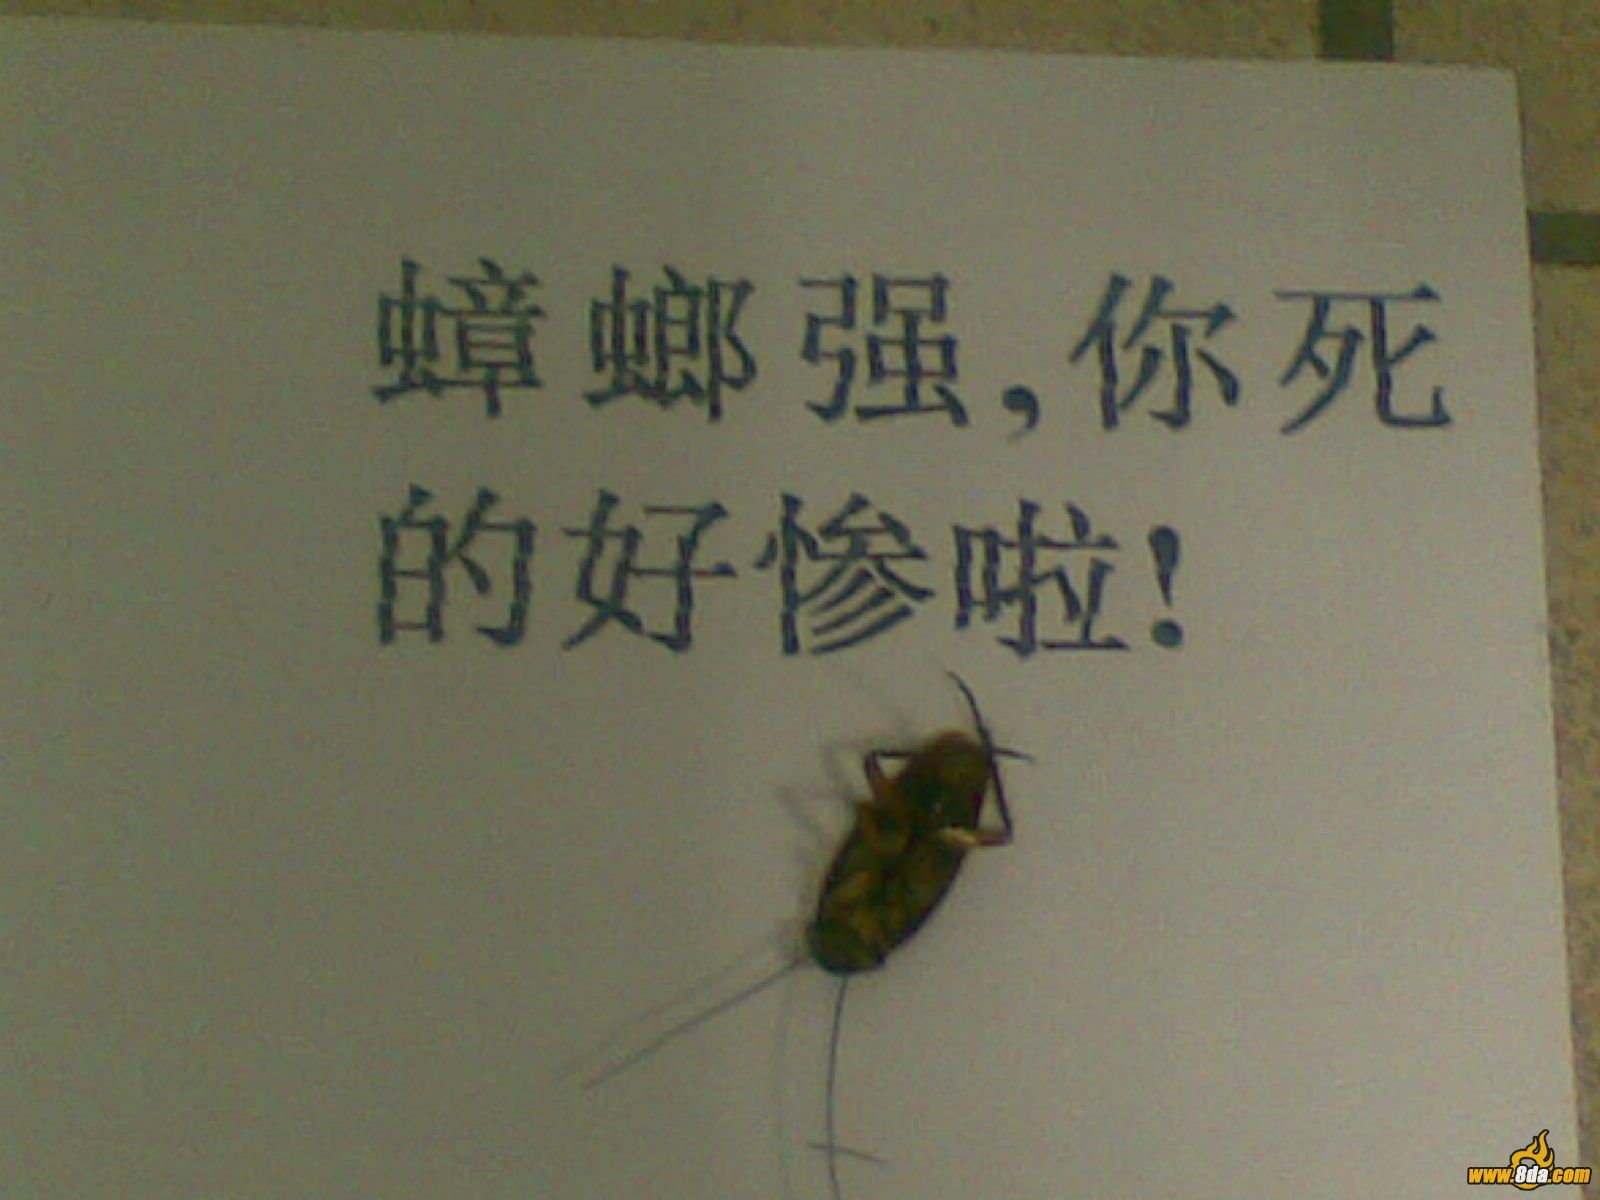 蟑螂强,你死
的好惨啦!
www.8da.com